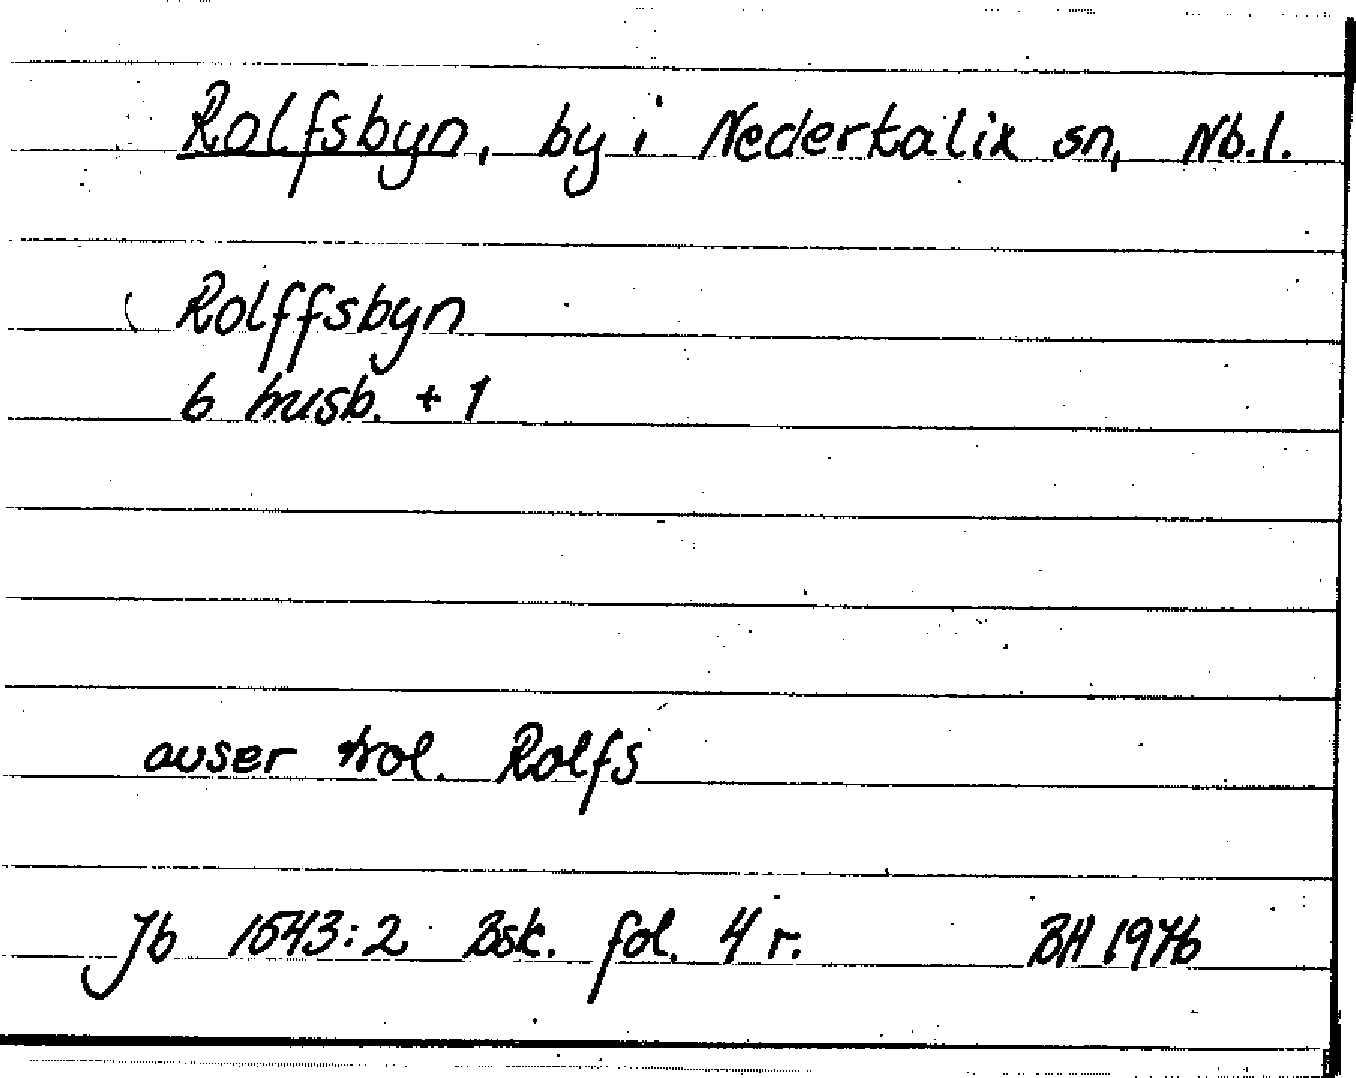 Rolfsbyn, by i Nederkalix sn, Nb.l.
Rolffsbyn
6 husb. + 1
avser trol. Rolfs
Jb 1543:2 Bsk. fol. 4 r. BH 1976